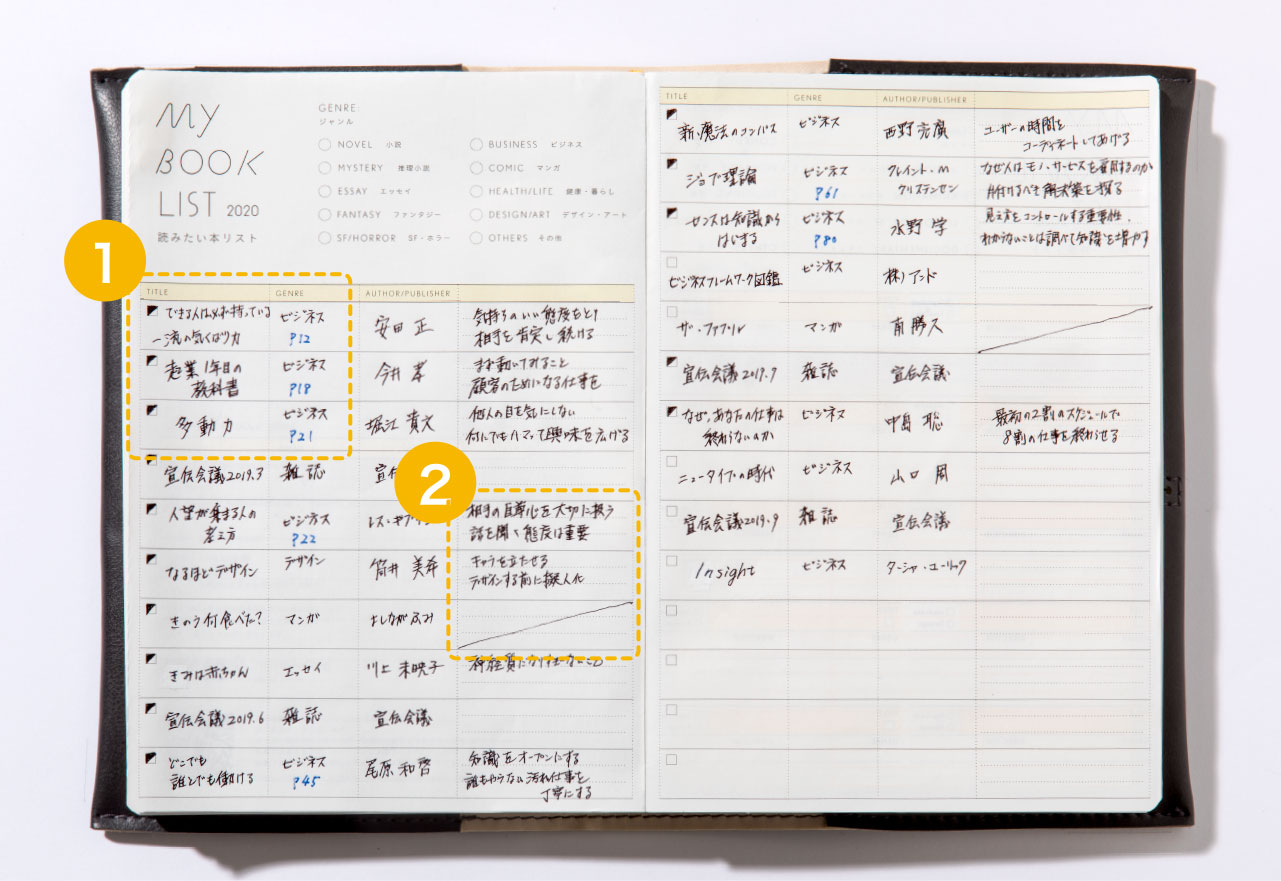 MY
BOOK
LIST 2020
読みたい本リスト
GENRE:
ジャンル
NOVEL 小説
MYSTERY 推理小説
ESSAY エッセイ
FANTASY ファンタジー
SF/HORROR SF・ホラー
BUSINESS ビジネス
COMIC マンガ
HEALTH/LIFE 健康・暮らし
DESIGN/ART デザイン・アート
OTHERS その他
1
TITLE GENRE AUTHOR/PUBLISHER
できる人は必ず持っている
一流の気くばり力
ビジネス
P12
安田 正
気持ちのいい態度をとり
相手を肯定し続ける
起業1年目の
教科書
ビジネス
P18
今井 孝
まず動いてみること
顧客のためになる仕事を
多動力
ビジネス
P21
堀江 貴文
他人の目を気にしない
何にでもハマって興味を広げる
宣伝会議2019.3
雑誌
宣伝
2
人望が集まる人の
考え方
ビジネス
P22
レス・ギブリン
相手の自尊心を大切に扱う
話を聞く態度は重要
なるほどデザイン
デザイン
筒井 美希
キャラを立たせる
デザインする前に擬人化
きのう何食べた?
マンガ
よしながふみ
きみは赤ちゃん
エッセイ
川上 未映子
神経質になりすぎないこと
宣伝会議2019.6
雑誌
宣伝会議
どこでも
誰とでも働ける
ビジネス
P45
尾原 和啓
知識をオープンにする
誰もやらない汚れ仕事を
丁寧にする
TITLE GENRE AUTHOR/PUBLISHER
新・魔法のコンパス
ビジネス
西野亮廣
ユーザーの時間を
コーディネートしてあげる
ジョブ理論
ビジネス
P61
クレイトン・M
クリステンセン
なぜ人はモノ・サービスを雇用するのか
片付けるべき解決策を探る
センスは知識から
はじまる
ビジネス
P80
水野 学
見え方をコントロールする重要性.
わからないことは調べて知識を増やす
ビジネスフレームワーク図鑑
ビジネス
株)アンド
ザ・ファブル
マンガ
南 勝久
宣伝会議2019.7
雑誌
宣伝会議
なぜ、あなたの仕事は
終わらないのか
ビジネス
中島 聡
最初の2割のスケジュールで
8割の仕事を終わらせる
ニュータイプの時代
ビジネス
山口 周
宣伝会議2019.9
雑誌
宣伝会議
Insight
ビジネス
ターシャ・ユーリック